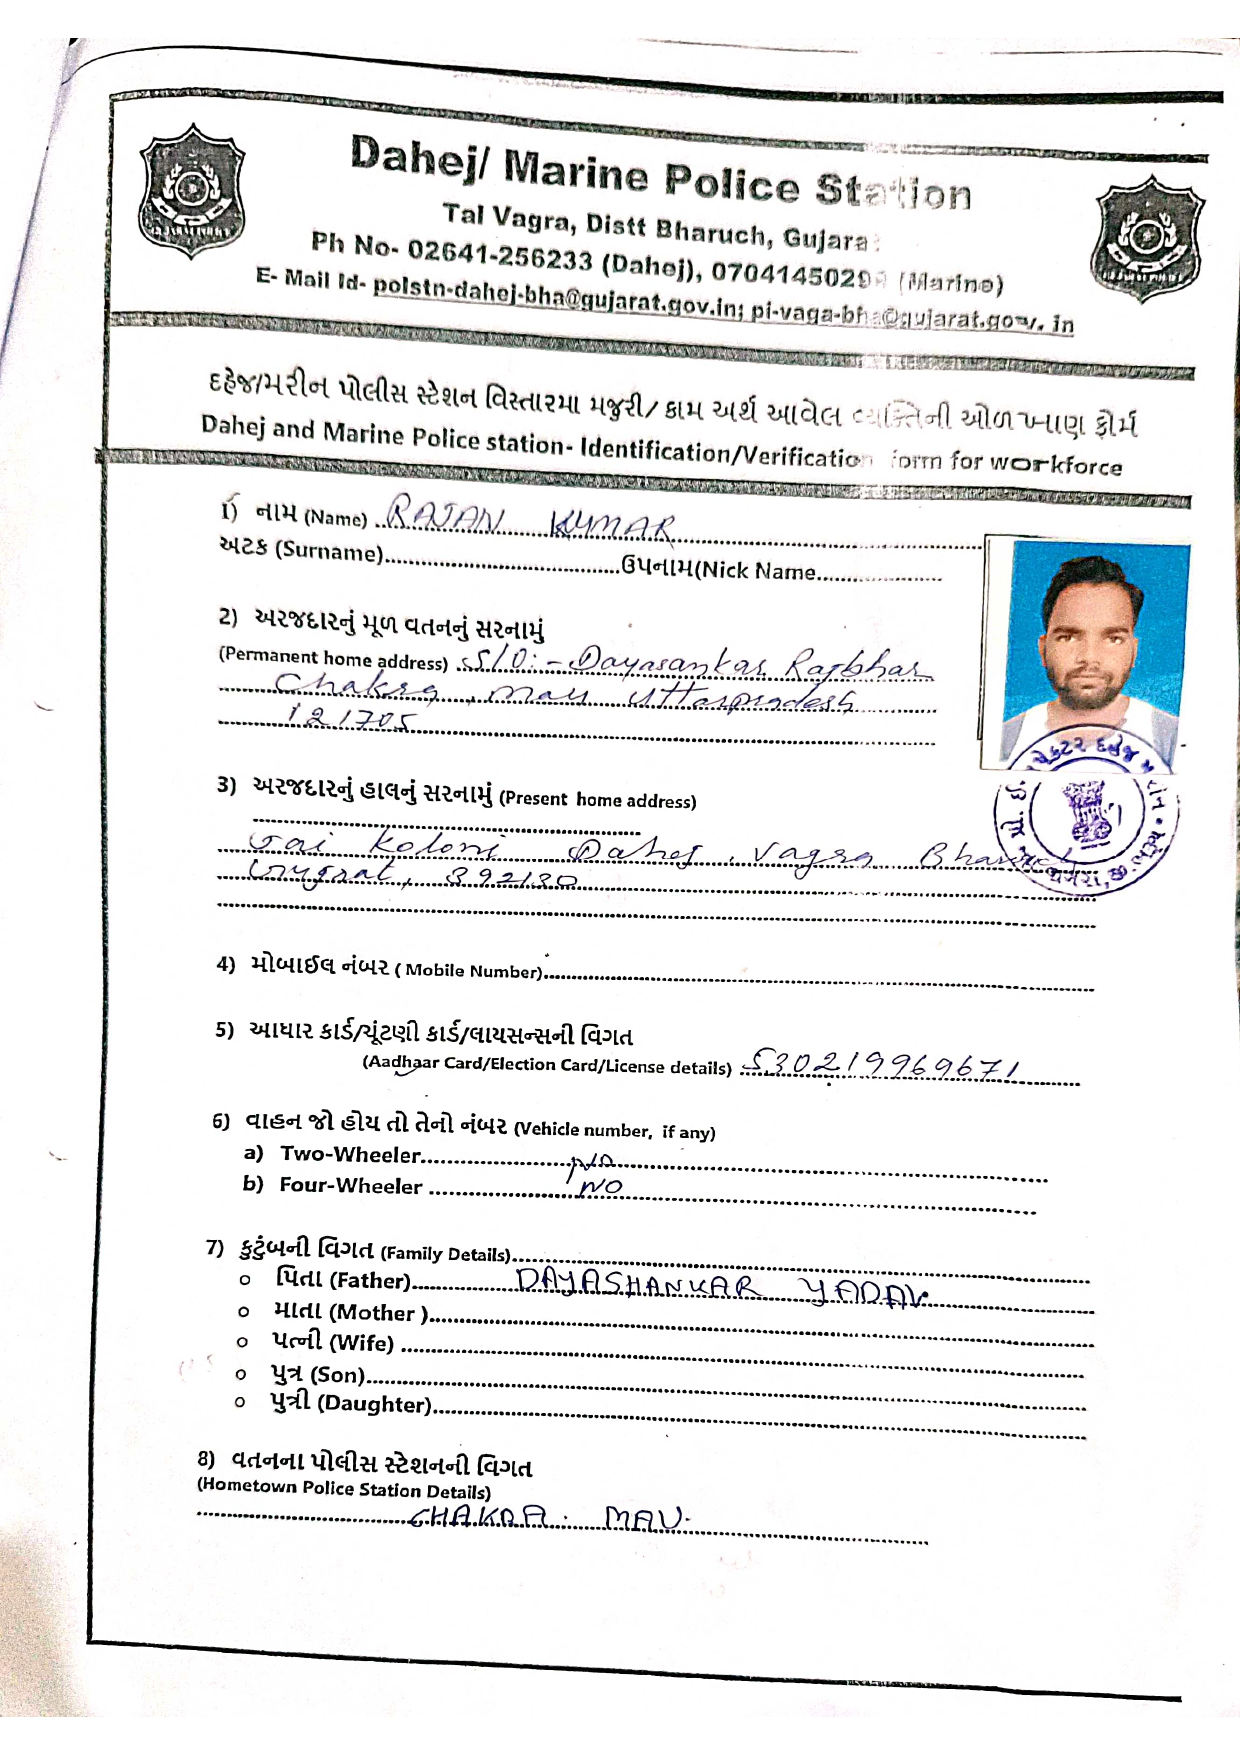 Dahej/ Marine Police Station
Tal Vagra, Distt Bharuch, Gujara
Ph No- 02641-256233 (Dahej), 0704145029 (Marine)
E- Mail Id- polstn-dahej-bha@gujarat.gov.in; pi-vaga-bha@gujarat.gov. in
દહેજ/મરીન પોલીસ સ્ટેશન વિસ્તારમા મજુરી/ કામ અર્થે આવેલ વ્યક્તિની ઓળખાણ ફોર્મ
Dahej and Marine Police station- Identification/Verification form for workforce
1) નામ (Name) RAJAN KUMAR
અટક (Surname)....................................ઉપનામ(Nick Name..................
2) અરજદારનું મૂળ વતનનું સરનામું
(Permanent home address) S/O:- Dayasankar Rajbhar
Chakra, mau uttarpradesh
121705
3) અરજદારનું હાલનું સરનામું (Present home address)
Jai Koloni Dahej, Vagra Bharuch
Gujrat, 392130
4) મોબાઈલ નંબર ( Mobile Number)
5) આધાર કાર્ડ/ચૂંટણી કાર્ડ/લાયસન્સની વિગત
(Aadhaar Card/Election Card/License details) 530219969671
6) વાહન જો હોય તો તેનો નંબર (Vehicle number, if any)
a) Two-Wheeler NO
b) Four-Wheeler NO
7) કુટુંબની વિગત (Family Details)
o પિતા (Father) DAYASHANKAR YADAV
o માતા (Mother )
o પત્ની (Wife)
o પુત્ર (Son)
o પુત્રી (Daughter)
8) વતનના પોલીસ સ્ટેશનની વિગત
(Hometown Police Station Details)
CHAKRA. MAU.